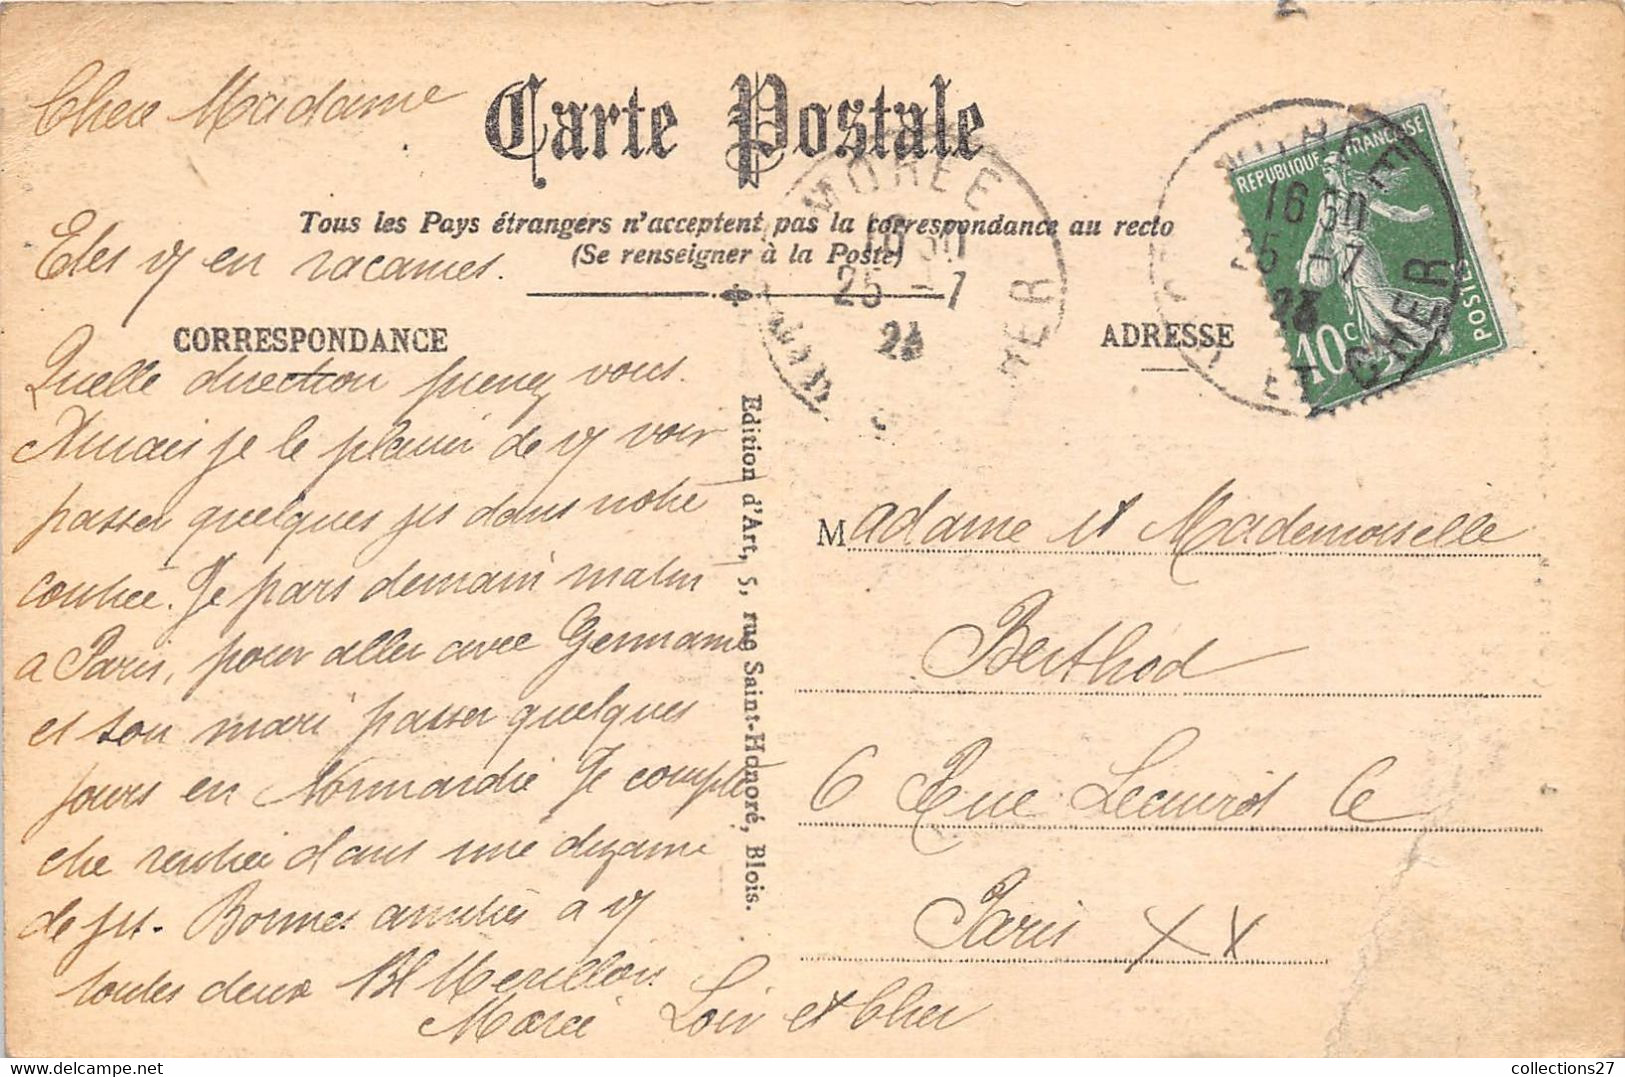 Carte Postale
Tous les Pays étrangers n'acceptent pas la correspondance au recto
(Se renseigner à la Poste)
CORRESPONDANCE
ADRESSE
Chere Madame
Etes vs en vacances.
Quelle direction prenez vous.
Aurais je le plaisir de vs voir
passer quelques jrs dans notre
contrée. Je pars demain matin
a Paris, pour aller avec Germaine
et son mari passer quelques
jours en Normandie Je compte
etre rentrée dans une dizaine
de jrs. Bonnes amitiés a vs
toutes deux
Morée Loir et Cher
Edition d'Art, 5, rue Saint-Honoré, Blois.
Madame et Mademoiselle
Berthod
6 Rue
Paris XX
MOREE
16 30
25 -7
CHER
REPUBLIQUE FRANÇAISE
10c
POSTES
16 30
25 -7
ET CHER
collections27